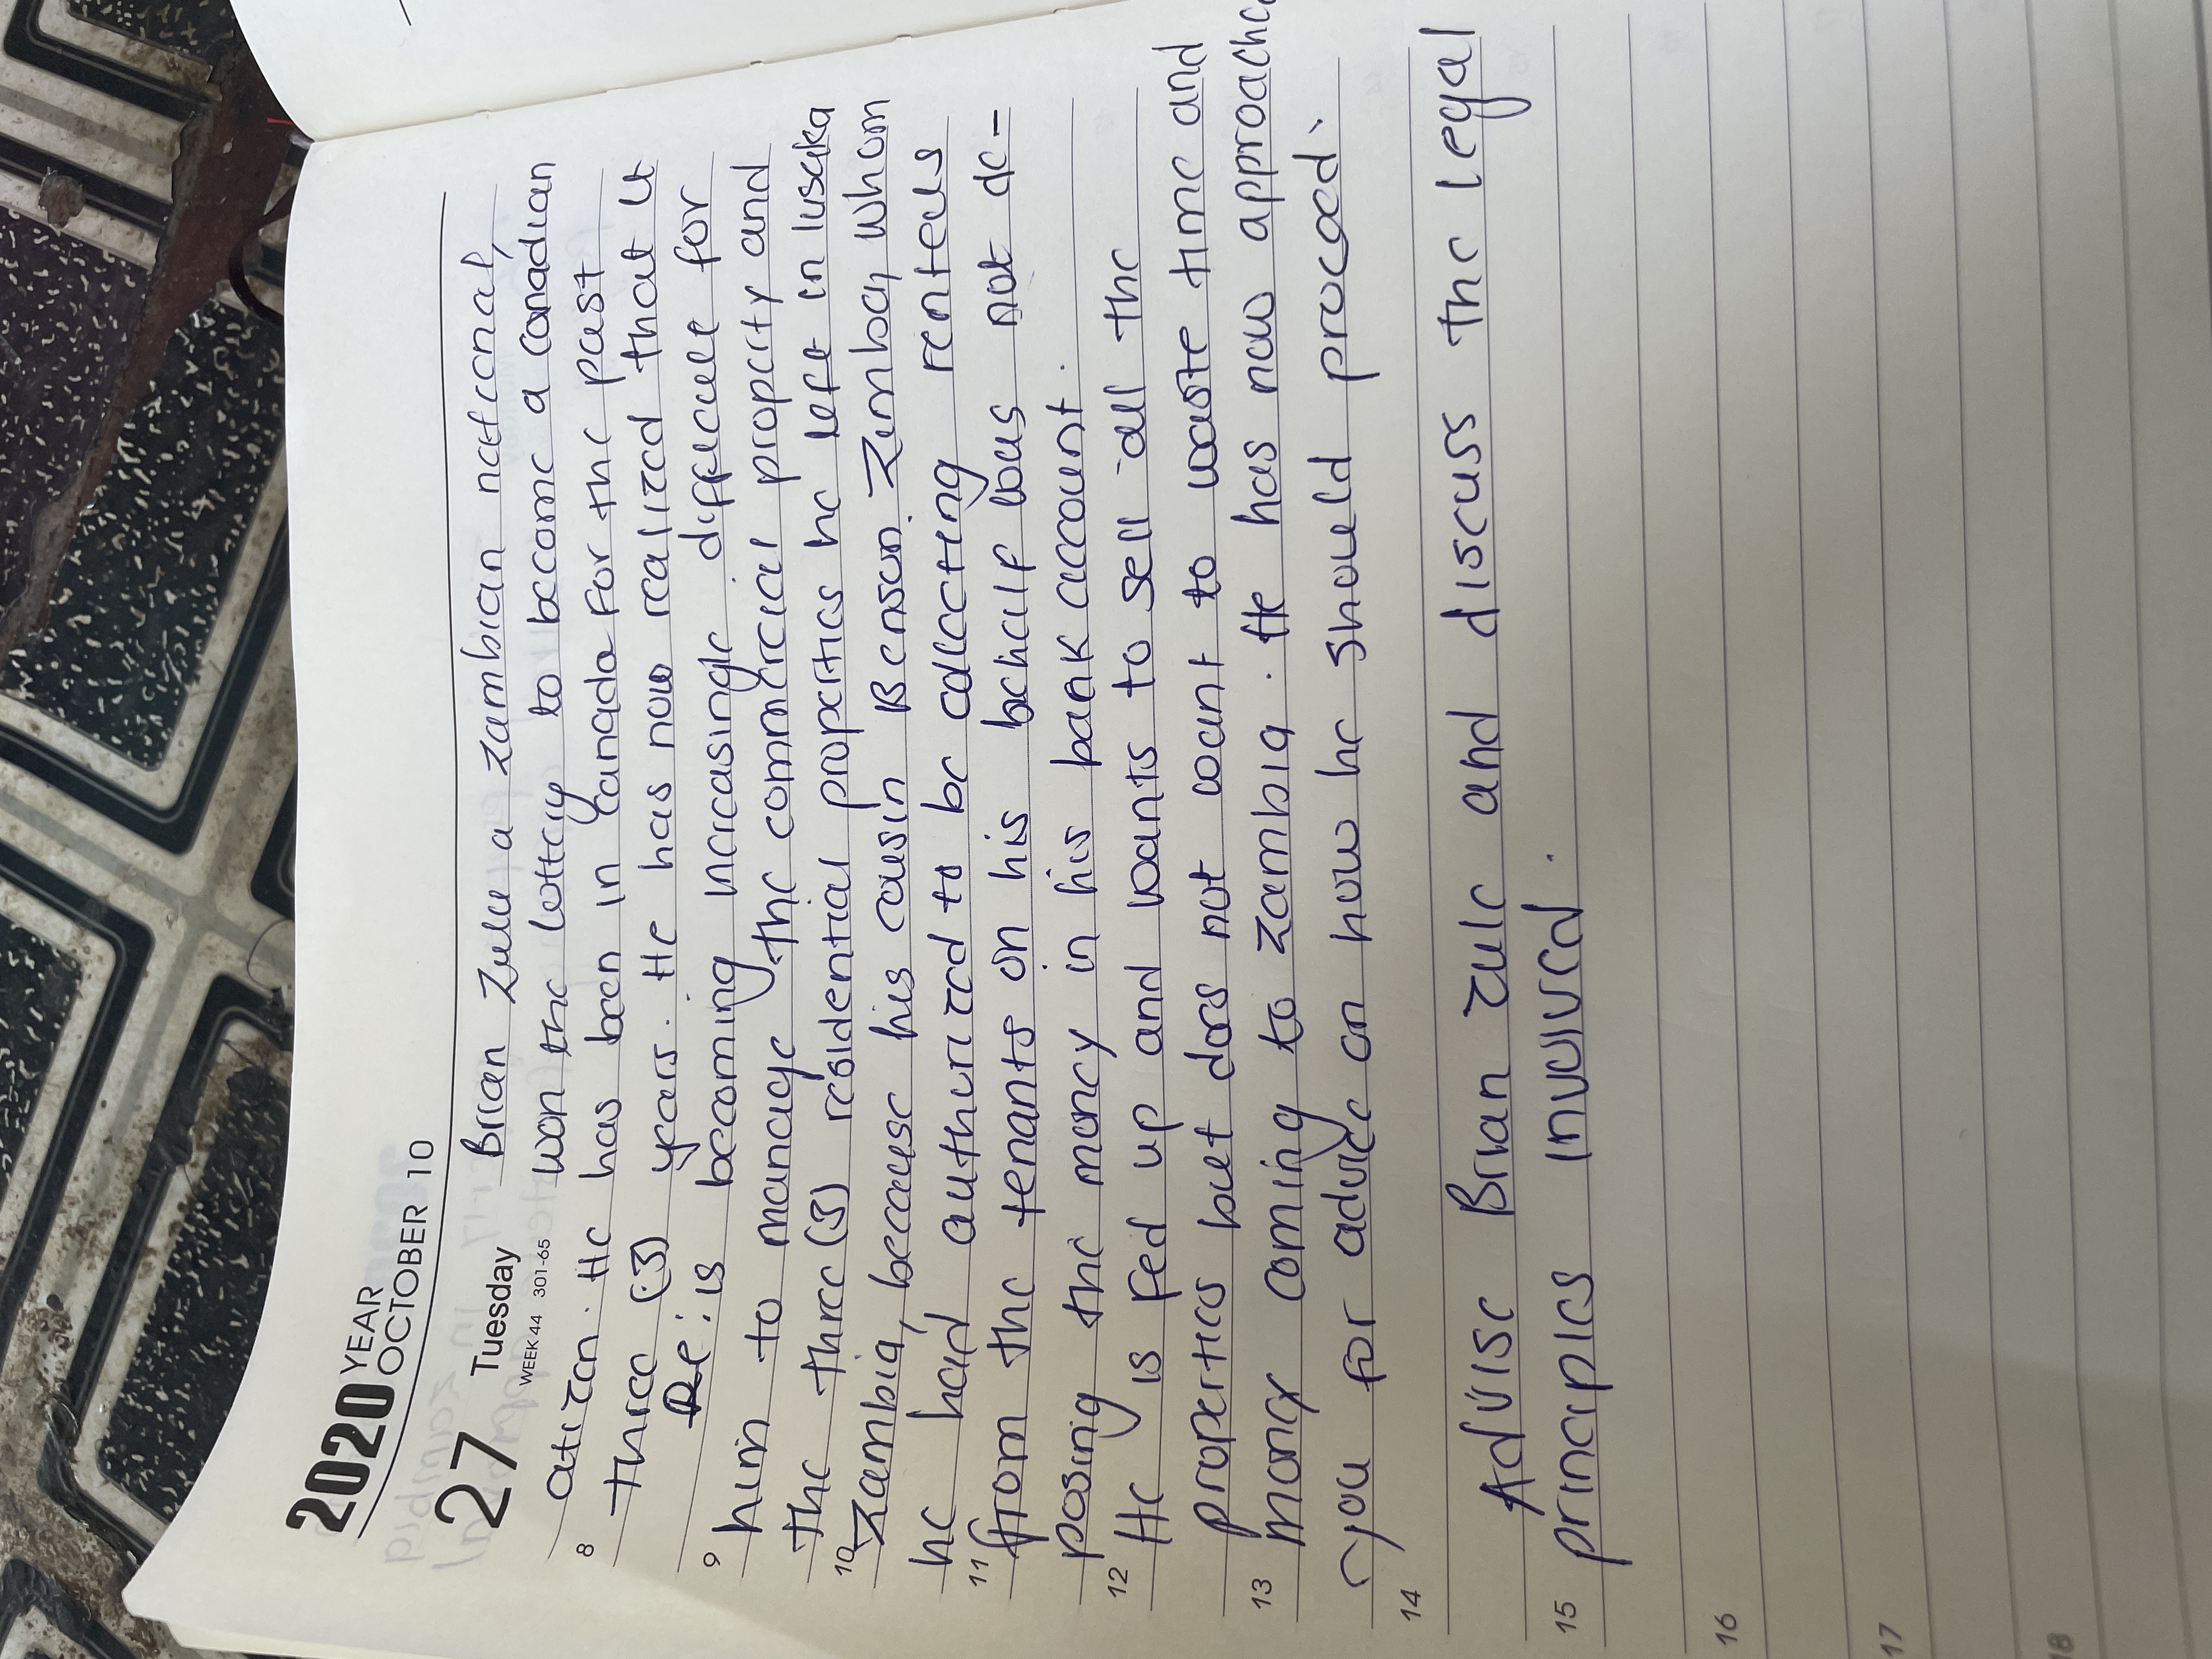 2020 YEAR
OCTOBER 10
27 Tuesday
WEEK 44 301-65
Brian Zulu a Zambian national,
won the lottery to become a canadian
8 citizen. He has been in Canada for the past
three (3) years. He has now realized that it
9 is becoming increasingle difficult for
him to manage the commercial property and
the three (3) residential properties he left in lusaka
10 Zambia, because his cousin Benson Zimboy whom
he had authorized to be collecting rentals
11 from the tenants on his behalf was not de-
posing the money in his bank account.
12 He is fed up and wants to sell all the
properties but does not want to waste time and
13 money coming to Zambia. He has now approache
you for advice on how he should proceed.
14
Advise Brian Zule and discuss the legal
15 principles involved.
16
17
18